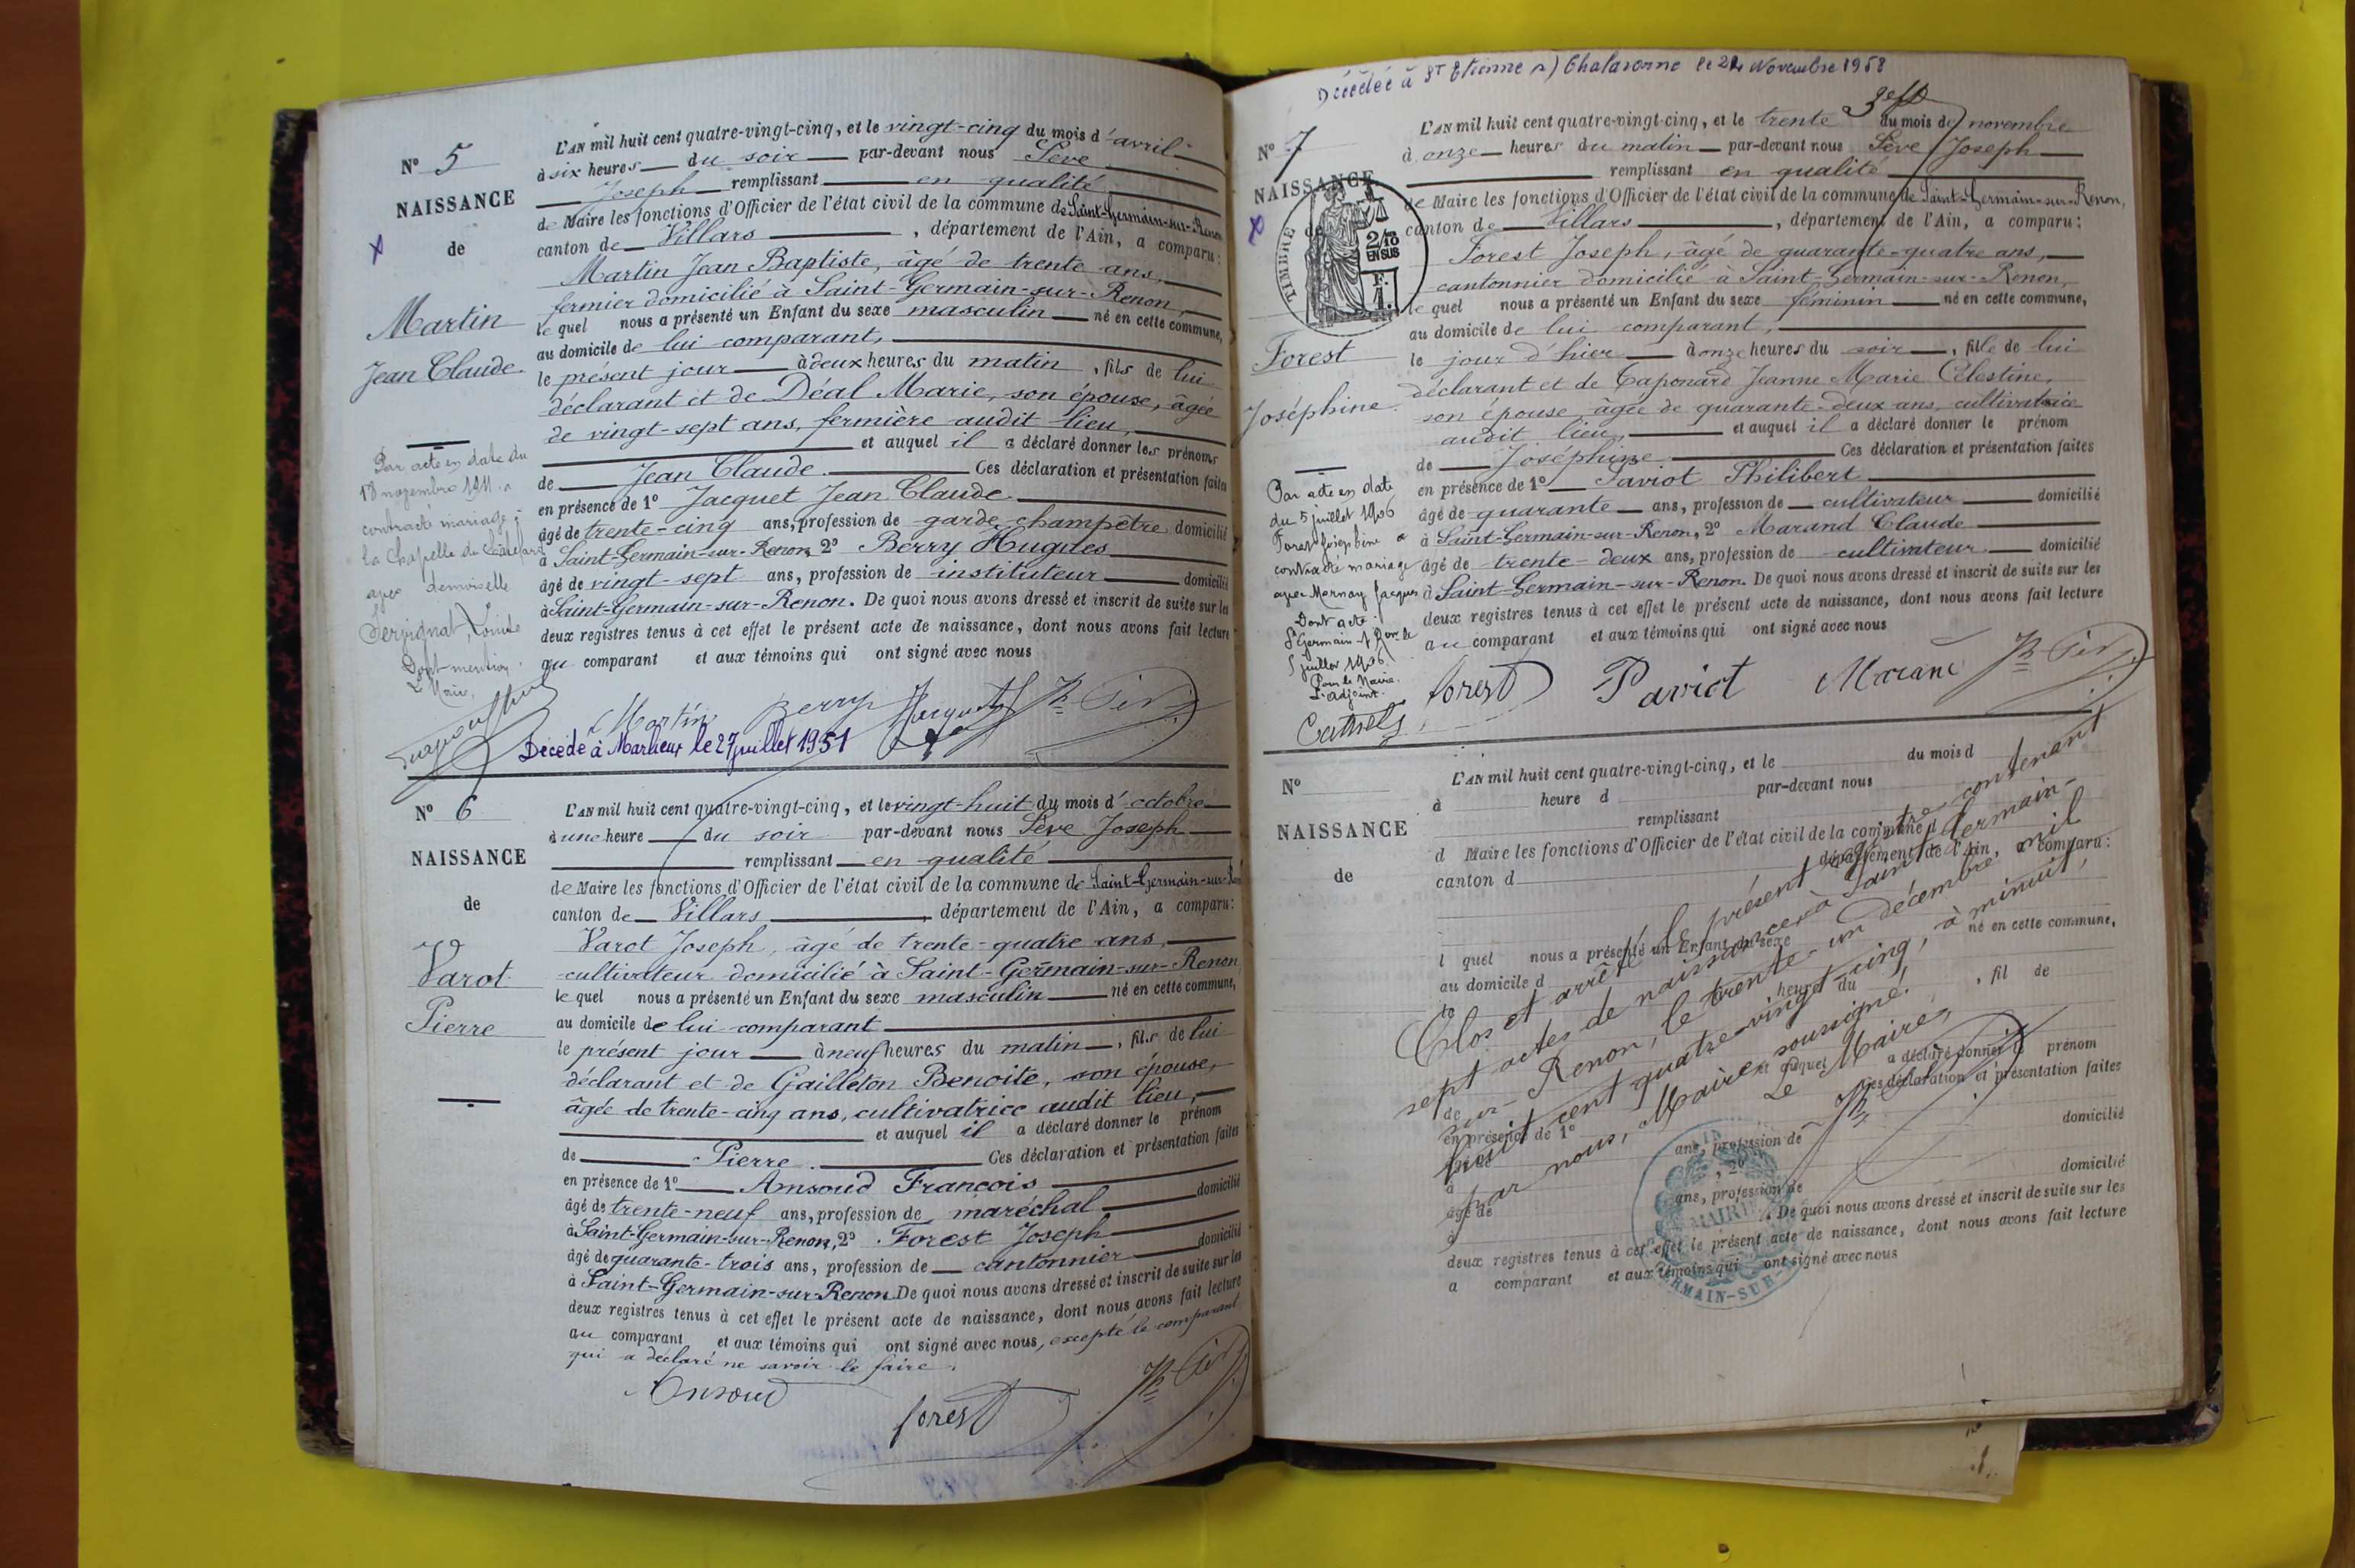 N° 5
NAISSANCE
de
Martin
Jean Claude.
Par acte en date du
18 novembre 1911 a
contracté mariage à
la Chapelle du Châtelard
avec demoiselle
Louise
Dont mention.
Le Maire,
L'AN mil huit cent quatre-vingt-cinq, et le vingt-cinq du mois d'avril
à six heures du soir par-devant nous Sève
Joseph remplissant en qualité
de Maire les fonctions d'Officier de l'état civil de la commune de Saint-Germain-sur-Renon
canton de Villars, département de l'Ain, a comparu:
Martin Jean Baptiste, âgé de trente ans,
fermier domicilié à Saint-Germain-sur-Renon,
le quel nous a présenté un Enfant du sexe masculin né en cette commune,
au domicile de lui comparant,
le présent jour à deux heures du matin, fils de lui
déclarant et de Déal Marie, son épouse, âgée
de vingt-sept ans, fermière audit lieu,
et auquel il a déclaré donner les prénoms
de Jean Claude. Ces déclaration et présentation faites
en présence de 1° Jacquet Jean Claude
âgé de trente-cinq ans, profession de garde champêtre domicilié
à Saint-Germain-sur-Renon, 2° Berry Hugues
âgé de vingt-sept ans, profession de instituteur domicilié
à Saint-Germain-sur-Renon. De quoi nous avons dressé et inscrit de suite sur les
deux registres tenus à cet effet le présent acte de naissance, dont nous avons fait lecture
au comparant et aux témoins qui ont signé avec nous
Martin Berry Jacquet
Décédé à Marlieux le 27 juillet 1951
N° 6
NAISSANCE
de
Varot
Pierre
L'AN mil huit cent quatre-vingt-cinq, et le vingt-huit du mois d'octobre
à une heure du soir par-devant nous Sève Joseph
remplissant en qualité
de Maire les fonctions d'Officier de l'état civil de la commune de Saint-Germain-sur-Renon
canton de Villars, département de l'Ain, a comparu:
Varot Joseph, âgé de trente-quatre ans,
cultivateur domicilié à Saint-Germain-sur-Renon
le quel nous a présenté un Enfant du sexe masculin né en cette commune,
au domicile de lui comparant
le présent jour à neuf heures du matin, fils de lui
déclarant et de Gailleton Benoite, son épouse,
âgée de trente-cinq ans, cultivatrice audit lieu,
et auquel il a déclaré donner le prénom
de Pierre. Ces déclaration et présentation faites
en présence de 1° Ansoud François
âgé de trente-neuf ans, profession de maréchal domicilié
à Saint-Germain-sur-Renon, 2° Forest Joseph
âgé de quarante-trois ans, profession de cantonnier domicilié
à Saint-Germain-sur-Renon De quoi nous avons dressé et inscrit de suite sur les
deux registres tenus à cet effet le présent acte de naissance, dont nous avons fait lecture
au comparant et aux témoins qui ont signé avec nous, excepté le comparant
qui a déclaré ne savoir le faire.
Ansoud forest
Décédée à St Etienne s/ Chalaronne le 22 Novembre 1958
N° 7
NAISSANCE
de
TIMBRE
2/10
EN SUS
F.
1.
Forest
Joséphine.
Par acte en date
du 5 juillet 1906
Forest Joséphine a
contracté mariage
avec Mornay Jacques
Dont acte.
St Germain-s-Renon le
5 juillet 1906.
Pour le Maire.
L'adjoint.
L'AN mil huit cent quatre-vingt-cinq, et le trente du mois de novembre
à onze heures du matin par-devant nous Sève Joseph
remplissant en qualité
de Maire les fonctions d'Officier de l'état civil de la commune de Saint-Germain-sur-Renon,
canton de Villars, département de l'Ain, a comparu:
Forest Joseph, âgé de quarante-quatre ans,
cantonnier domicilié à Saint-Germain-sur-Renon,
le quel nous a présenté un Enfant du sexe féminin né en cette commune,
au domicile de lui comparant,
le jour d'hier à onze heures du soir, fille de lui
déclarant et de Taponard Jeanne Marie Célestine,
son épouse, âgée de quarante-deux ans, cultivatrice
audit lieu, et auquel il a déclaré donner le prénom
de Joséphine Ces déclaration et présentation faites
en présence de 1° Paviot Philibert
âgé de quarante ans, profession de cultivateur domicilié
à Saint-Germain-sur-Renon, 2° Marand Claude
âgé de trente-deux ans, profession de cultivateur domicilié
à Saint-Germain-sur-Renon. De quoi nous avons dressé et inscrit de suite sur les
deux registres tenus à cet effet le présent acte de naissance, dont nous avons fait lecture
au comparant et aux témoins qui ont signé avec nous
forest Paviot Marand
N°
NAISSANCE
de
L'AN mil huit cent quatre-vingt-cinq, et le du mois d
à heure d par-devant nous
remplissant
d Maire les fonctions d'Officier de l'état civil de la commune d
canton d département de l'Ain, a comparu:
l quel nous a présenté un Enfant du sexe né en cette commune,
au domicile d
le heure du , fil de
et auquel a déclaré donner le prénom
de Ces déclaration et présentation faites
en présence de 1°
âgé de ans, profession de domicilié
à , 2°
âgé de ans, profession de domicilié
à . De quoi nous avons dressé et inscrit de suite sur les
deux registres tenus à cet effet le présent acte de naissance, dont nous avons fait lecture
a comparant et aux témoins qui ont signé avec nous
Clos et arrêté le présent registre contenant
sept actes de naissance à Saint-Germain-
sur-Renon, le trente-un décembre mil
huit cent quatre-vingt-cinq, à minuit,
par nous, Maire soussigné.
Le Maire,
MAIRIE
GERMAIN-SUR-